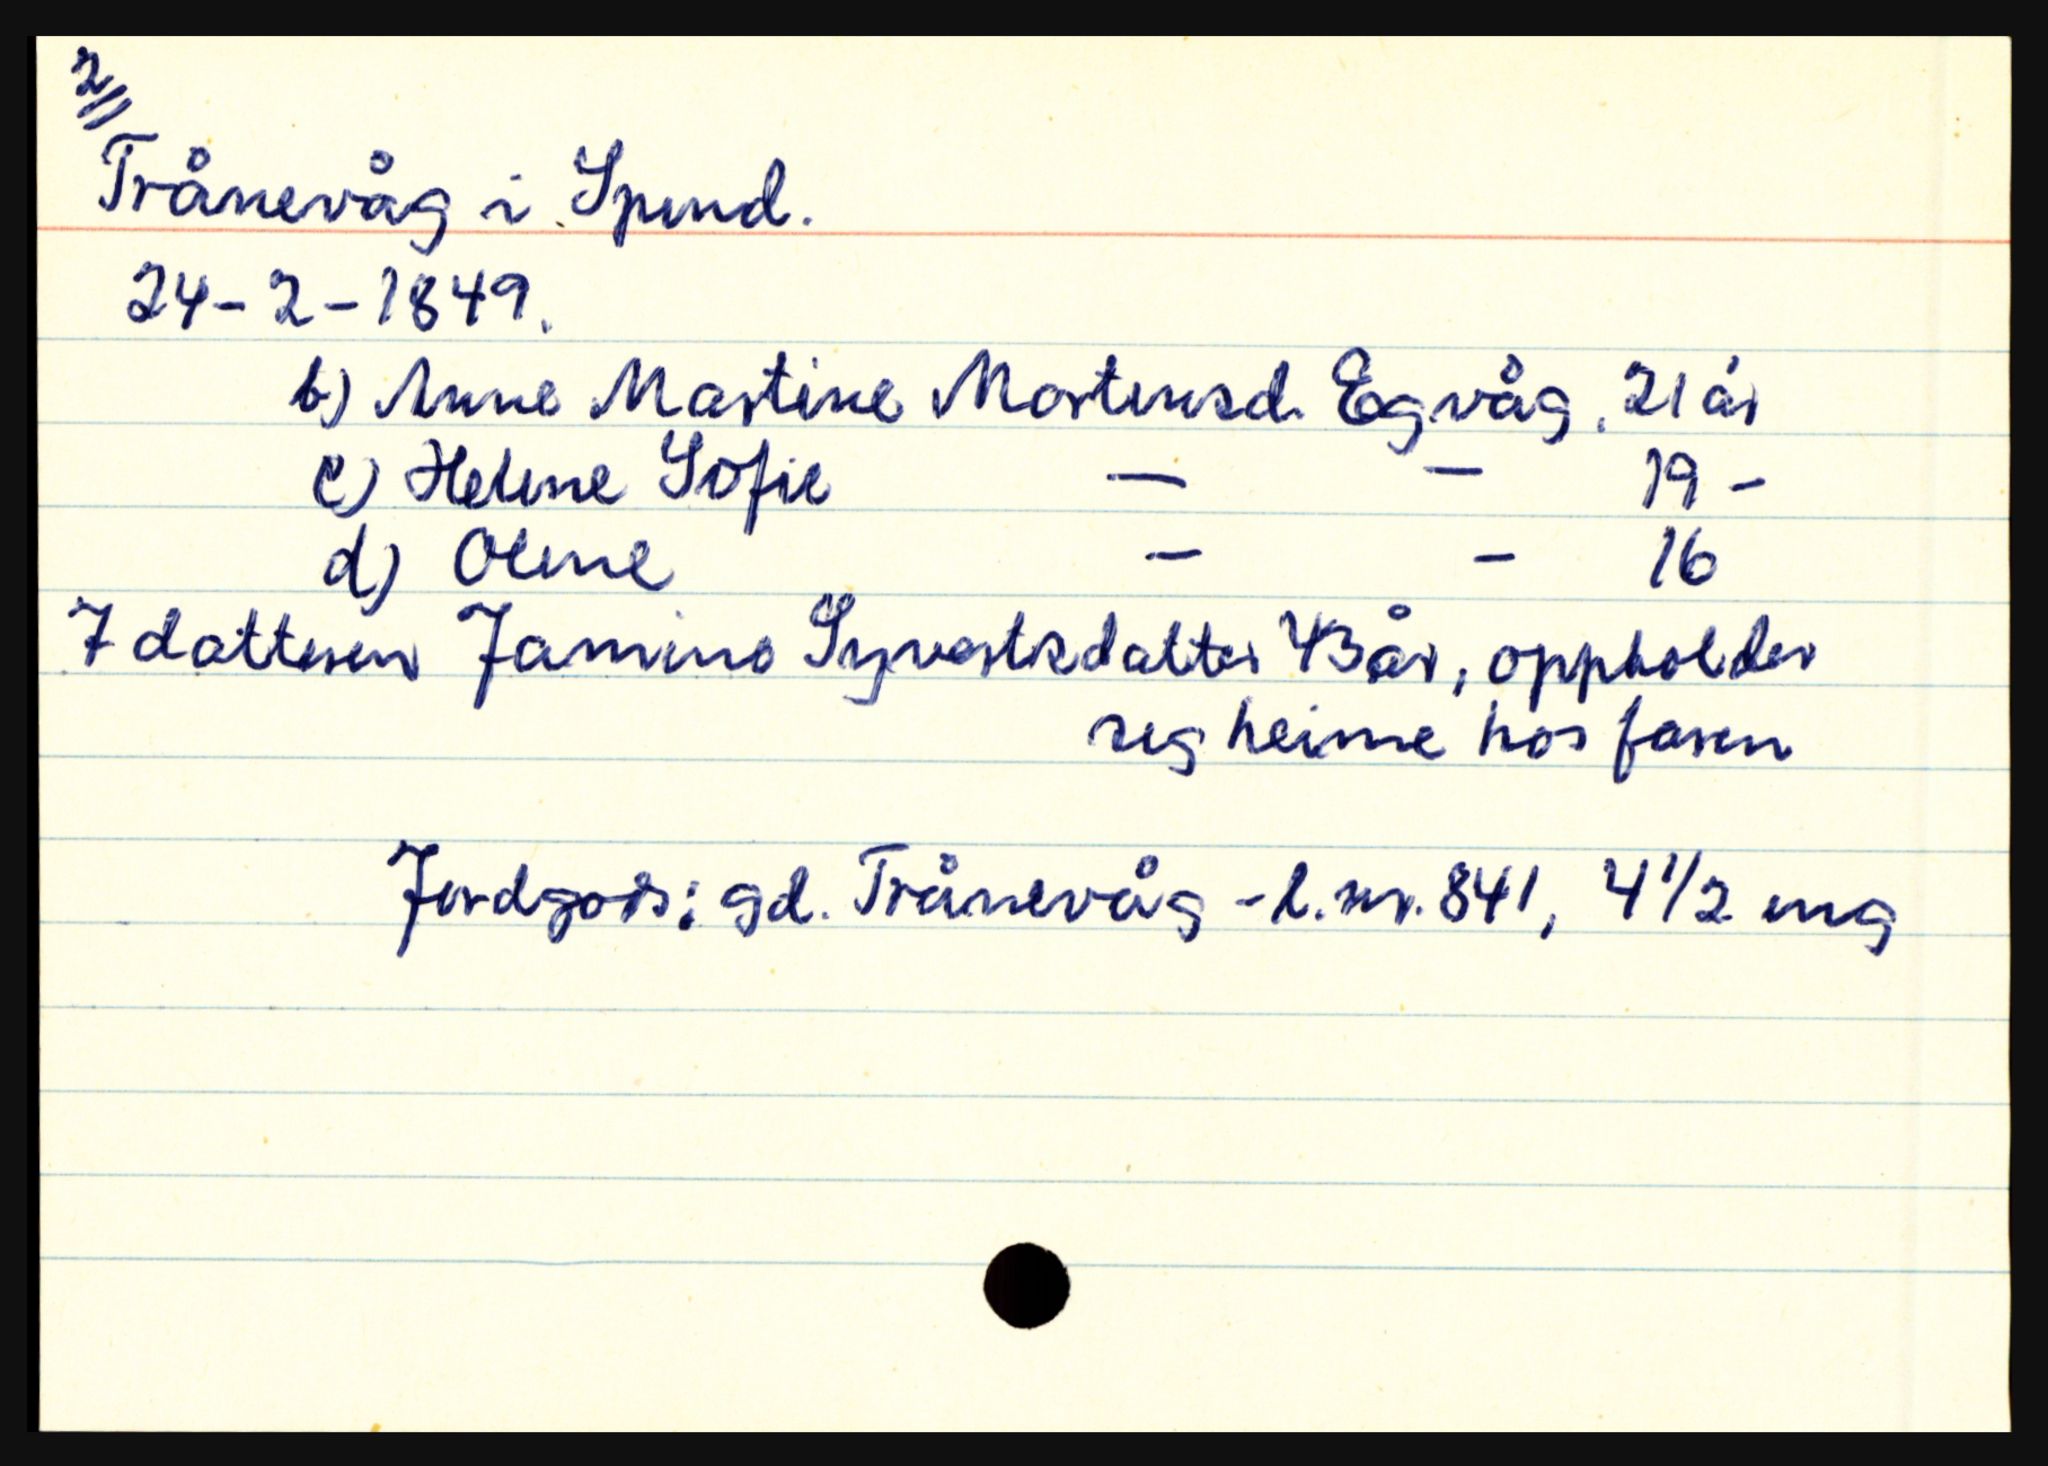 2//
Trånevåg i Spind.
24-2-1849.
b) Anne Martine Mortensd. Egvåg. 21 år
c) Helene Sofie — — 19 -
d) Olene — — 16
7 datteren Jamine Syvertsdatter 43 år, oppholder
seg heime hos faren
Jordgods: gd. Trånevåg - l.nr. 841, 4 1/2 mg